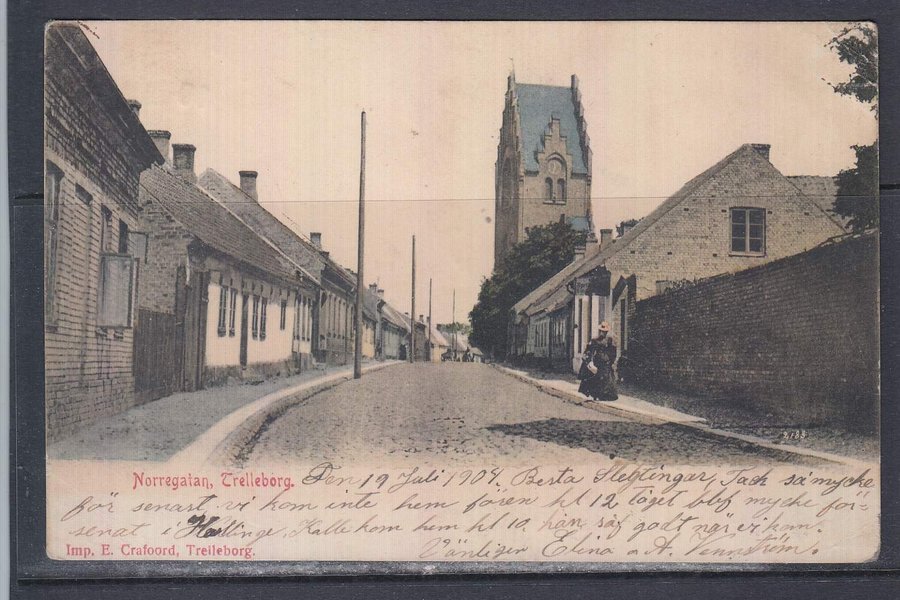 2183
Norregatan, Trelleborg. Den 19 Juli 1904. Bersta Slegtingar, Tack så mycke
för senast, vi kom inte hem fören kl 12 tåget blef mycke för-
senat i Kalle kom hem kl 10, han såf godt när vi kom.
Imp. E. Crafoord, Trelleborg.
Vänligen Elina o A. Vennström.